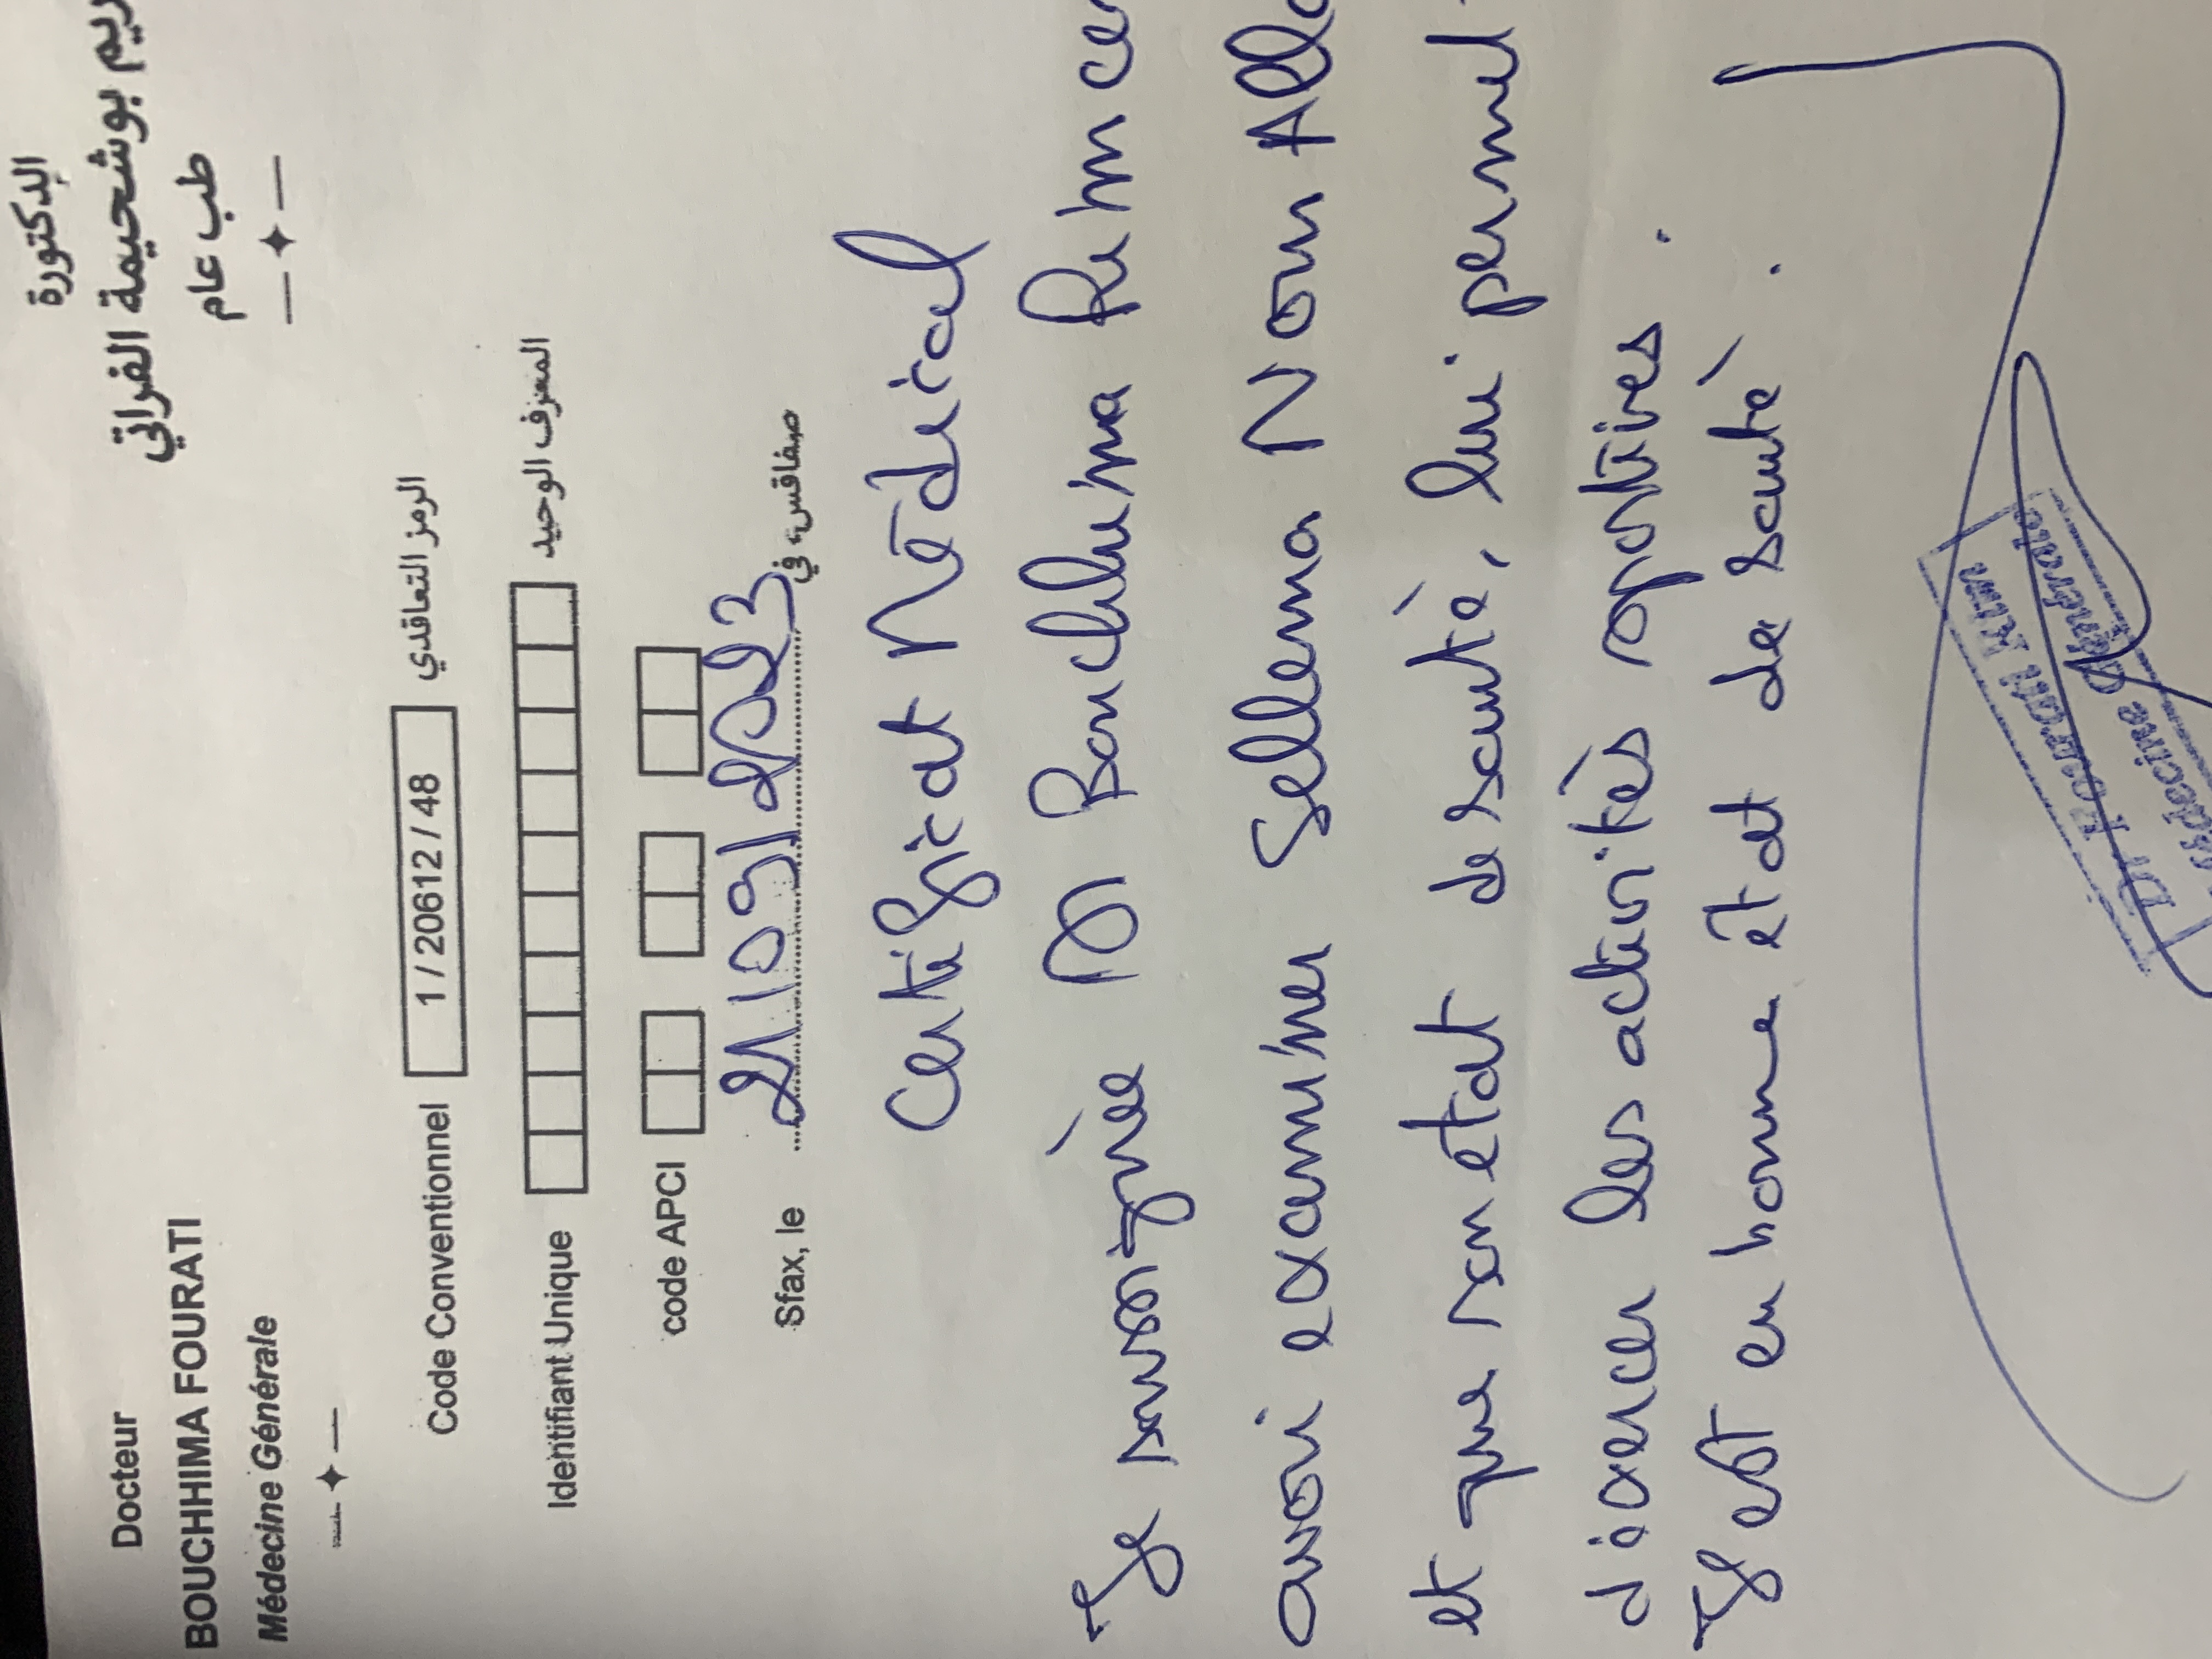 Docteur
BOUCHHIMA FOURATI
Médecine Générale
الدكتورة
ريم بوشحيمة الفراتي
طب عام
Code Conventionnel 1 / 20612 / 48 الرمز التعاقدي
Identifiant Unique المعرف الوحيد
code APCI
Sfax, le 21/09/2023 صفاقس، في
Certificat Médical
Je soussignée Dr Bouchhima Rim ce
avoir examiner Sellema Nour Alla
et que son etat de santé, lui permet
d'exercer les activités sportives.
Il est en bonne état de santé.
Dr Fourati Rim
Médecine Générale